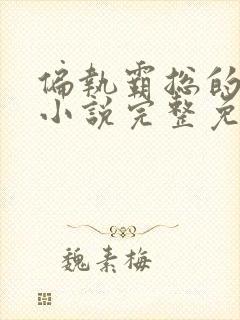 偏執霸総的
小説完整免
魏素梅